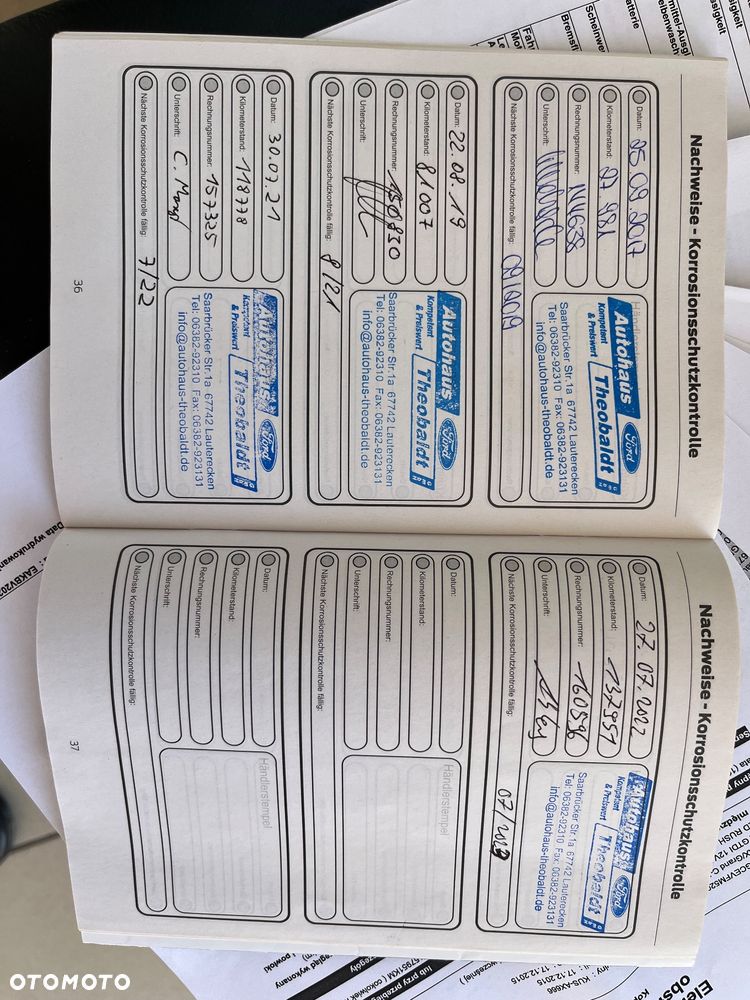 Nachweise - Korrosionsschutzkontrolle
Datum: 25.09.2017
Kilometerstand: 27 981
Rechnungsnummer: 144638
Unterschrift:
Nächste Korrosionsschutzkontrolle fällig: 09/2019
Autohaus Theobaldt
Kompetent
& Preiswert
Ford
Saarbrücker Str.1a 67742 Lauterecken
Tel: 06382-92310 Fax: 06382-923131
info@autohaus-theobaldt.de
Datum: 22.08.19
Kilometerstand: 81007
Rechnungsnummer: 150830
Unterschrift:
Nächste Korrosionsschutzkontrolle fällig: 8/21
Autohaus Theobaldt
Kompetent
& Preiswert
Ford
Saarbrücker Str.1a 67742 Lauterecken
Tel: 06382-92310 Fax: 06382-923131
info@autohaus-theobaldt.de
Datum: 30.07.21
Kilometerstand: 118778
Rechnungsnummer: 157325
Unterschrift:
Nächste Korrosionsschutzkontrolle fällig: 7/22
Autohaus Theobaldt
Kompetent
& Preiswert
Ford
Saarbrücker Str.1a 67742 Lauterecken
Tel: 06382-92310 Fax: 06382-923131
info@autohaus-theobaldt.de
36
Nachweise - Korrosionsschutzkontrolle
Datum: 27.07.2022
Kilometerstand: 137951
Rechnungsnummer: 160596
Unterschrift:
Nächste Korrosionsschutzkontrolle fällig: 07/2023
Autohaus Theobaldt
Kompetent
& Preiswert
Ford
Saarbrücker Str.1a 67742 Lauterecken
Tel: 06382-92310 Fax: 06382-923131
info@autohaus-theobaldt.de
Datum:
Kilometerstand:
Rechnungsnummer:
Unterschrift:
Nächste Korrosionsschutzkontrolle fällig:
Händlerstempel
Datum:
Kilometerstand:
Rechnungsnummer:
Unterschrift:
Nächste Korrosionsschutzkontrolle fällig:
Händlerstempel
37
Data wydrukowan
17.12.2015
17.12.2015
KUS-AK666
OTOMOTO